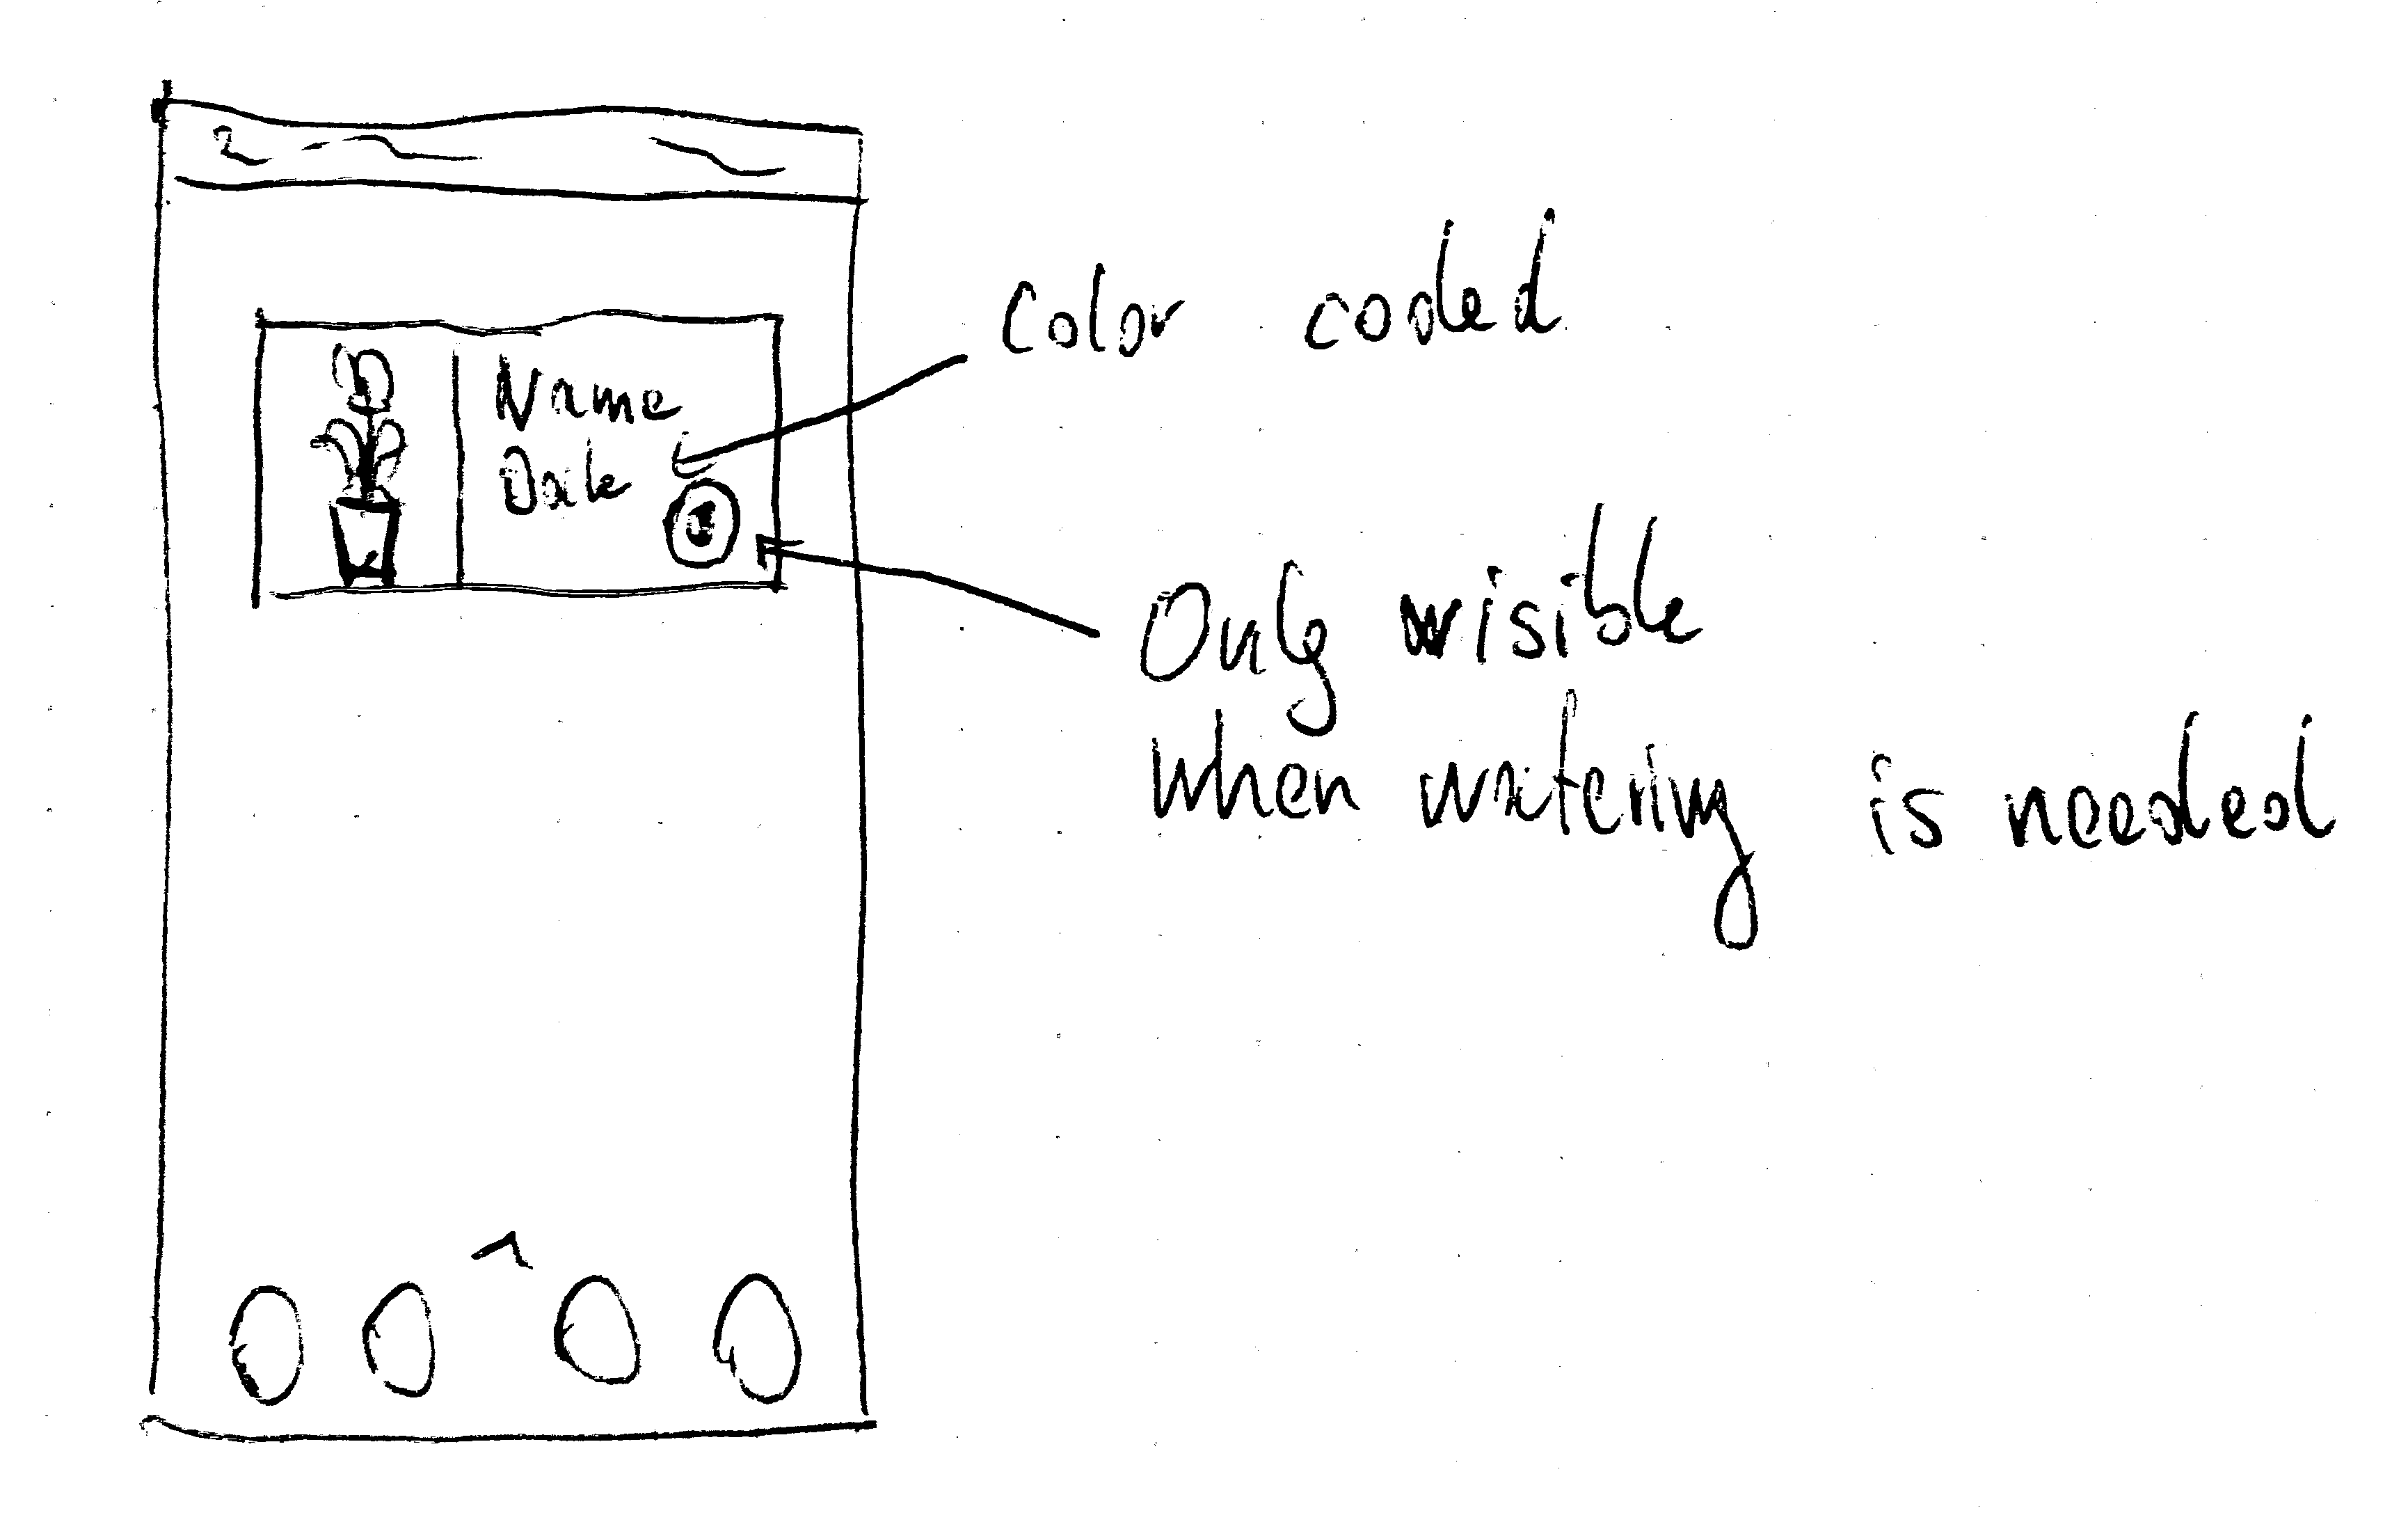 Name
Date
Color coded
Only visible
when watering is needed